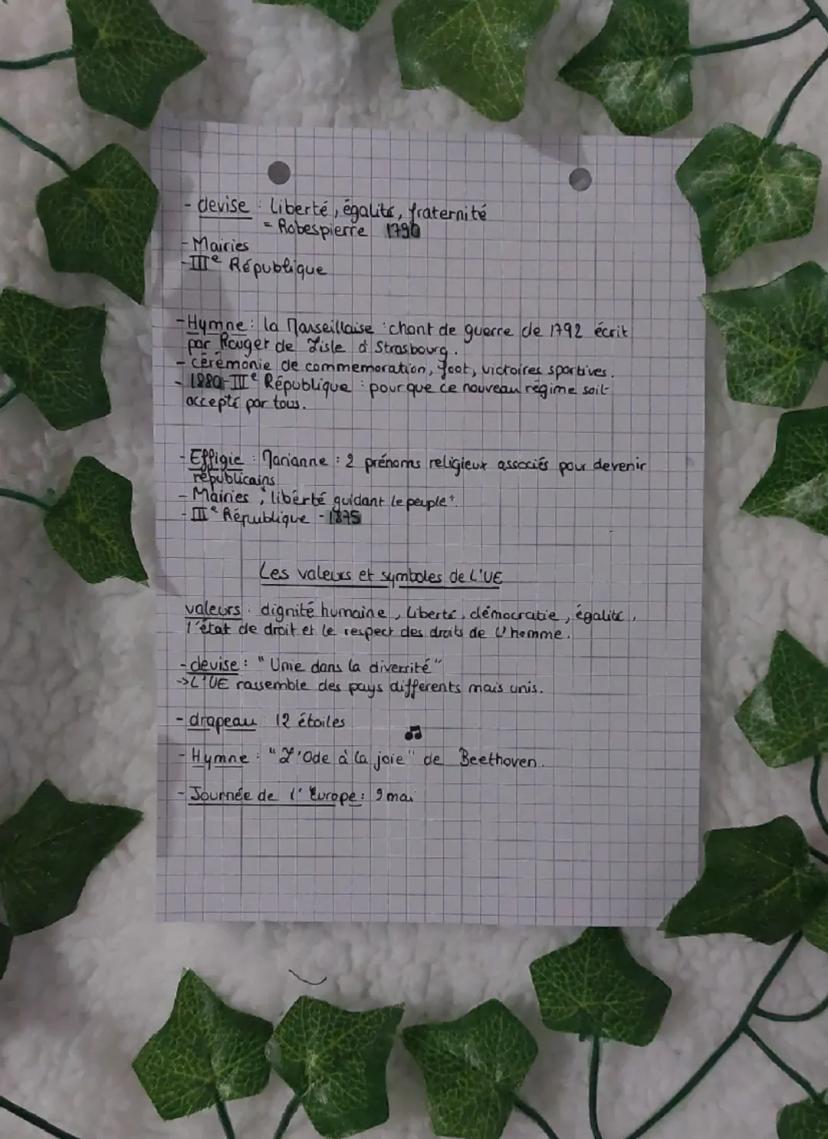 - devise : liberté, égalité, fraternité
= Robespierre 1790
- Mairies
- IIIe République
- Hymne : la Marseillaise : chant de guerre de 1792 écrit
par Rouger de Lisle à Strasbourg.
- cérémonie de commemoration, foot, victoires sportives.
- 1880 - IIIe République : pour que ce nouveau régime soit
accepté par tous.
- Effigie : Marianne : 2 prénoms religieux associés pour devenir
républicains
- Mairies, "liberté guidant le peuple".
- IIIe République - 1875
Les valeurs et symboles de L'UE
valeurs : dignité humaine, liberté, démocratie, égalité,
l'état de droit et le respect des droits de L'homme.
- devise : "Unie dans la diversité"
->L'UE rassemble des pays différents mais unis.
- drapeau 12 étoiles
- Hymne : "L'Ode à la joie" de Beethoven.
- Journée de l'Europe : 9 mai